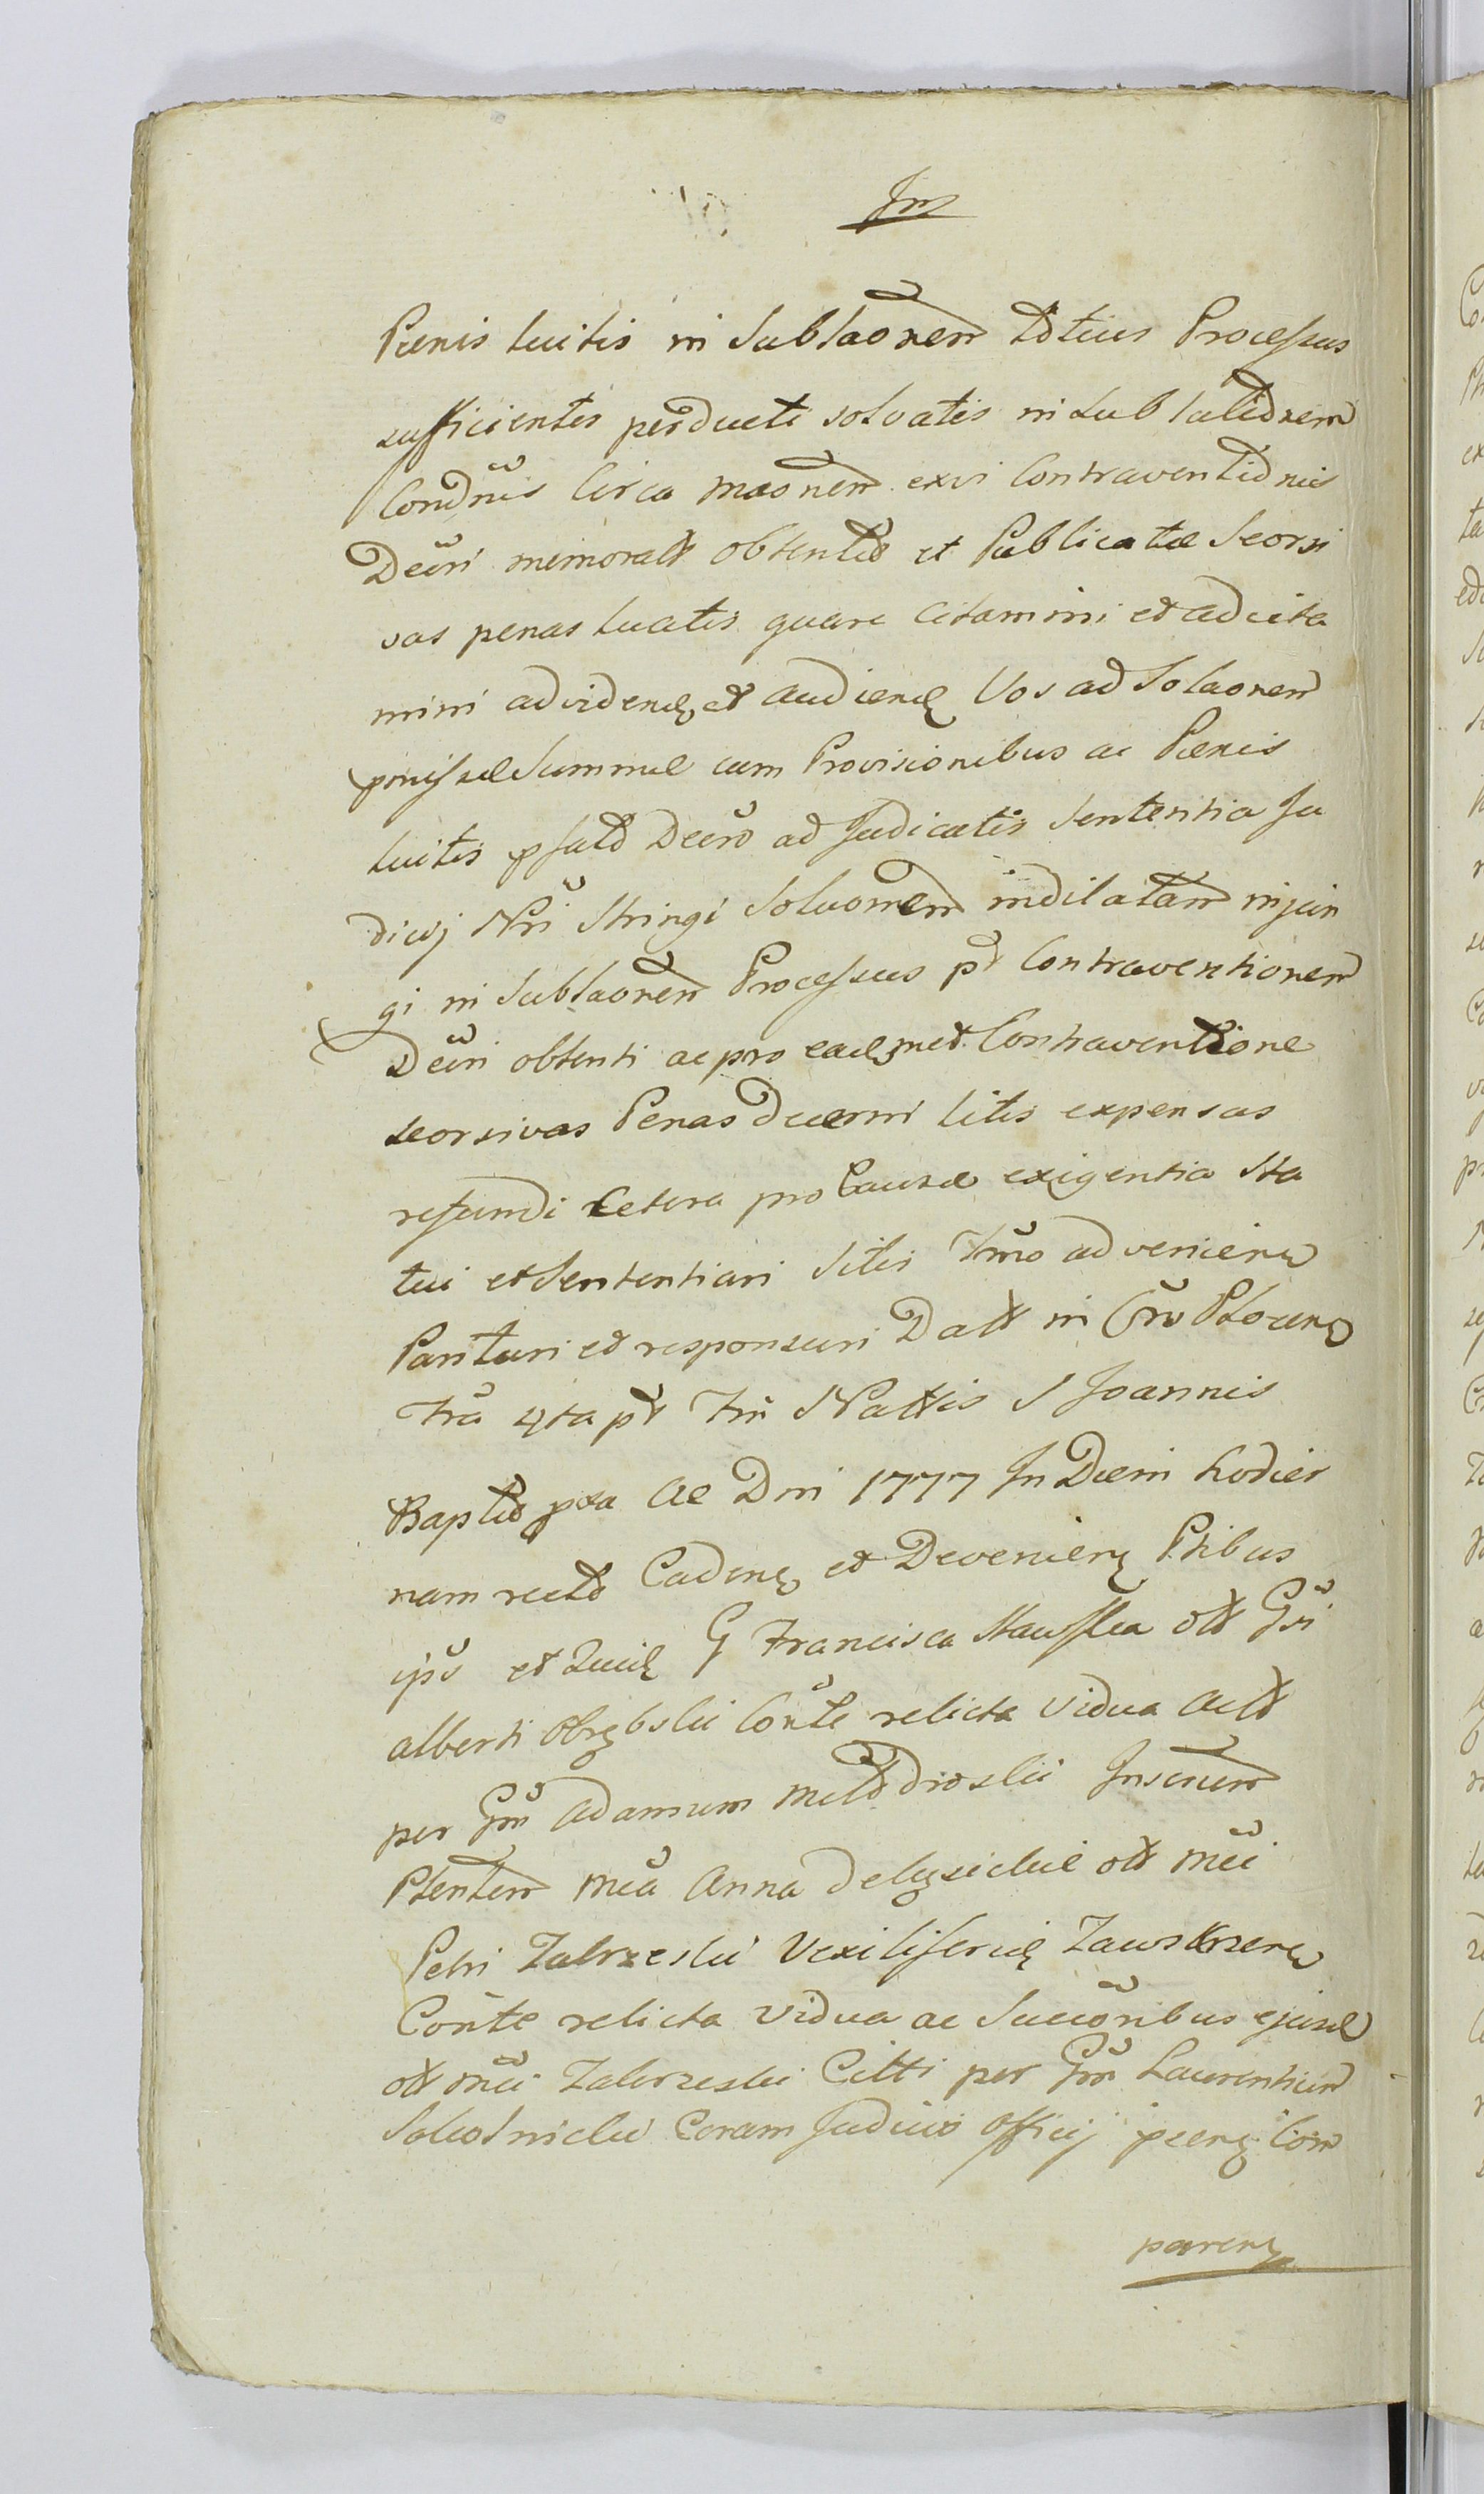 Jm
Pænis luitis in Sublaonem totius Processus
sufficientis perducti solvatis in Sublationem
Condnis Circa maonem exvi Contraventionis
Decri memorat obtentæ et Publicatæ Seorsi
vas penas luatis quare Citamini et adcita
mini ad videnḍ et audienḍ Vos ad Solaonem
pmissæ Summæ cum Provisionibus ac Pænis
luitis psato Decro ad Judicatis Sententia Ju
dicij Nri Stringi Soluonem indilatam injun
gi in Sublaonem Processus pt Contraventionem
Decri obtenti ac pro eadem met Contraventione
seorsivas Penas Decerni litis expensas
refundi Cetera pro Causæ exigentia Sta
tui et Sententiari Sitis Tmo advenienṭ
Parituri et responsuri Datt in Cro Plocenṣ
Fra 4ta pt Fm Nattis S Joannis
Baptæ pxa Ae Dni 1777 In Diem hodier
nam recte Cadenṭ et Devenienṭ Ptibus
ipṡ et quidem G Francisca Stawska ott Gsi
alberti Obrębski Conte relicta Vidua Actt
per Gm Adamum Modrowskii Inserum
Ptentem Mca Anna Delęzichie ott Mci
Petri Zakrzeski Vexiliferidę Zawskrzenṣ
Conte relicta Vidua ac Succoribus ejusd
ott Mci Zakrzeski Citti per Gm Laurentium
Sokolnicki Coram Judicio Officij pcenṭ Com
parenṭ